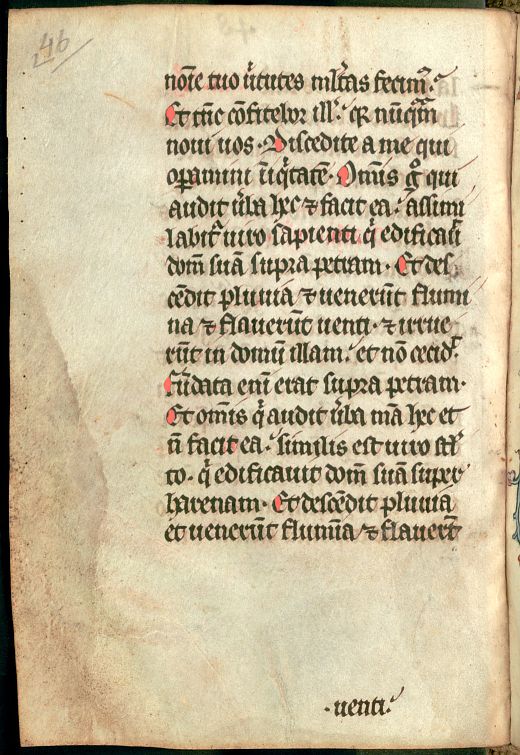 46
noīe tuo ũtutes m̃ltas fecim⁹.
Et tūc cōfitebor ill'. q̃ nūq̃m
noui uos. Discedite a me qui
op̃amini iniq̃tatē. Omĩs g̊ qui
audit ũba hec ⁊ facit ea. assimi
labit̃ uiro sapienti q̇ edificauit
domū suā supra petram. Et des
cēdit pluuia ⁊ uenerūt flumi
na ⁊ flauerūt uenti. ⁊ irrue
rūt in domū illam. et nō cecid̃.
Fũdata enī erat supra petram.
Et omĩs q̇ audit ũba mea hec et
ñ facit ea. similis est uiro stl̃
to. q̇ edificauit domū suā super
harenam. Et descēdit pluuia
et uenerūt flumīa ⁊ flauerūt
.uenti.